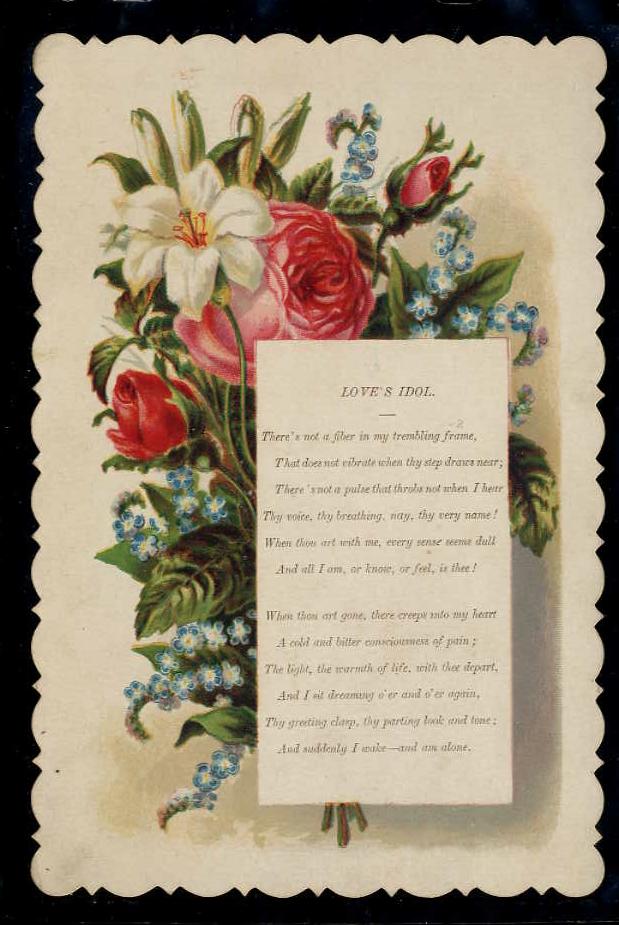 LOVE'S IDOL.
There's not a fiber in my trembling frame,
That does not vibrate when thy step draws near;
There's not a pulse that throbs not when I hear
Thy voice, thy breathing, nay, thy very name!
When thou art with me, every sense seems dull
And all I am, or know, or feel, is thee!
When thou art gone, there creeps into my heart
A cold and bitter consciousness of pain;
The light, the warmth of life, with thee depart,
And I sit dreaming o'er and o'er again,
Thy greeting clasp, thy parting look and tone;
And suddenly I wake—and am alone.